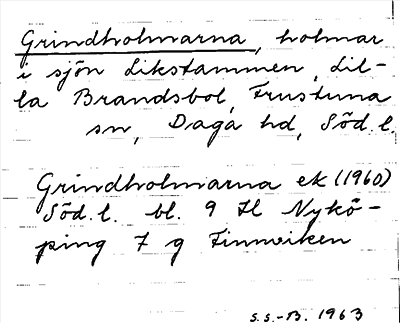 Grindholmarna, holmar
i sjön Likstammen, Lil-
la Brandsbol, Frustuna
sn, Daga hd, Söd. l.
Grindholmarna ek (1960)
Söd. l. bl. 9 H Nykö-
ping 7 g Finnviken
S.S.-B. 1963